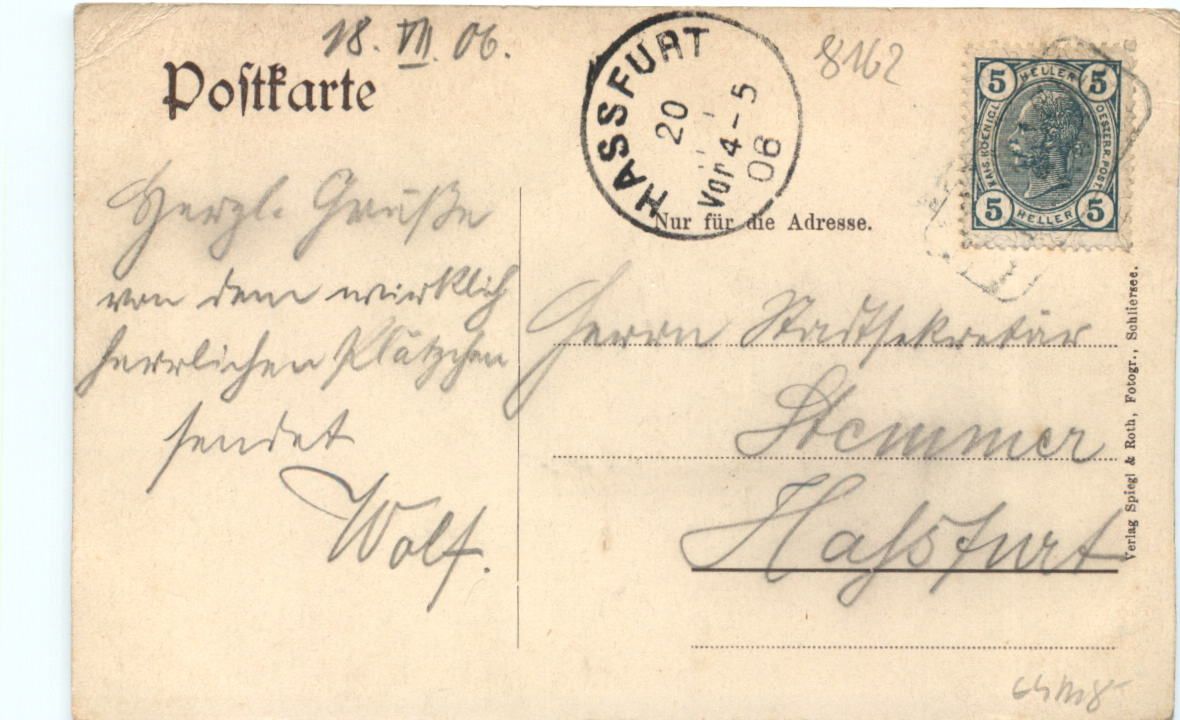 18. VII. 06.
Postkarte
HASSFURT
20
Vor 4-5
06
8162
5 HELLER 5
KAIS. KOENIGL.
OESTERR. POST.
5 HELLER 5
Nur für die Adresse.
Herzl. Grüße
von dem wirklich
herrlichen Plätzchen
sendet
Wolf.
Herrn Stadtsekretär
Stemmer
Haßfurt
Verlag Spiegl & Roth, Fotogr., Schliersee.